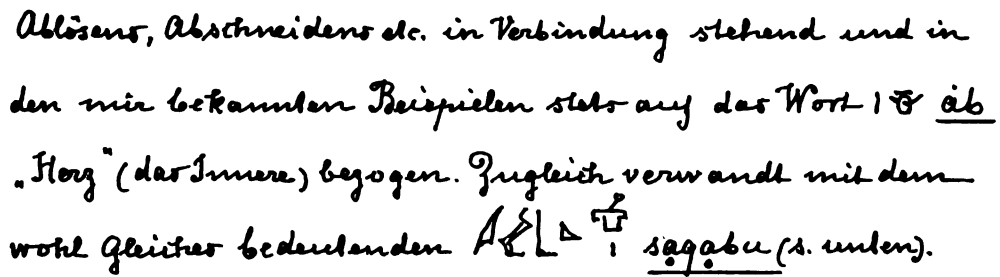 Ablösens, Abschneidens etc. in Verbindung stehend und in
den mir bekannten Beispielen stets auf das Wort ȧb
„Herz“ (das Innere) bezogen. Zugleich verwandt mit dem
wohl Gleiches bedeutenden sạqạbu (s. unten).